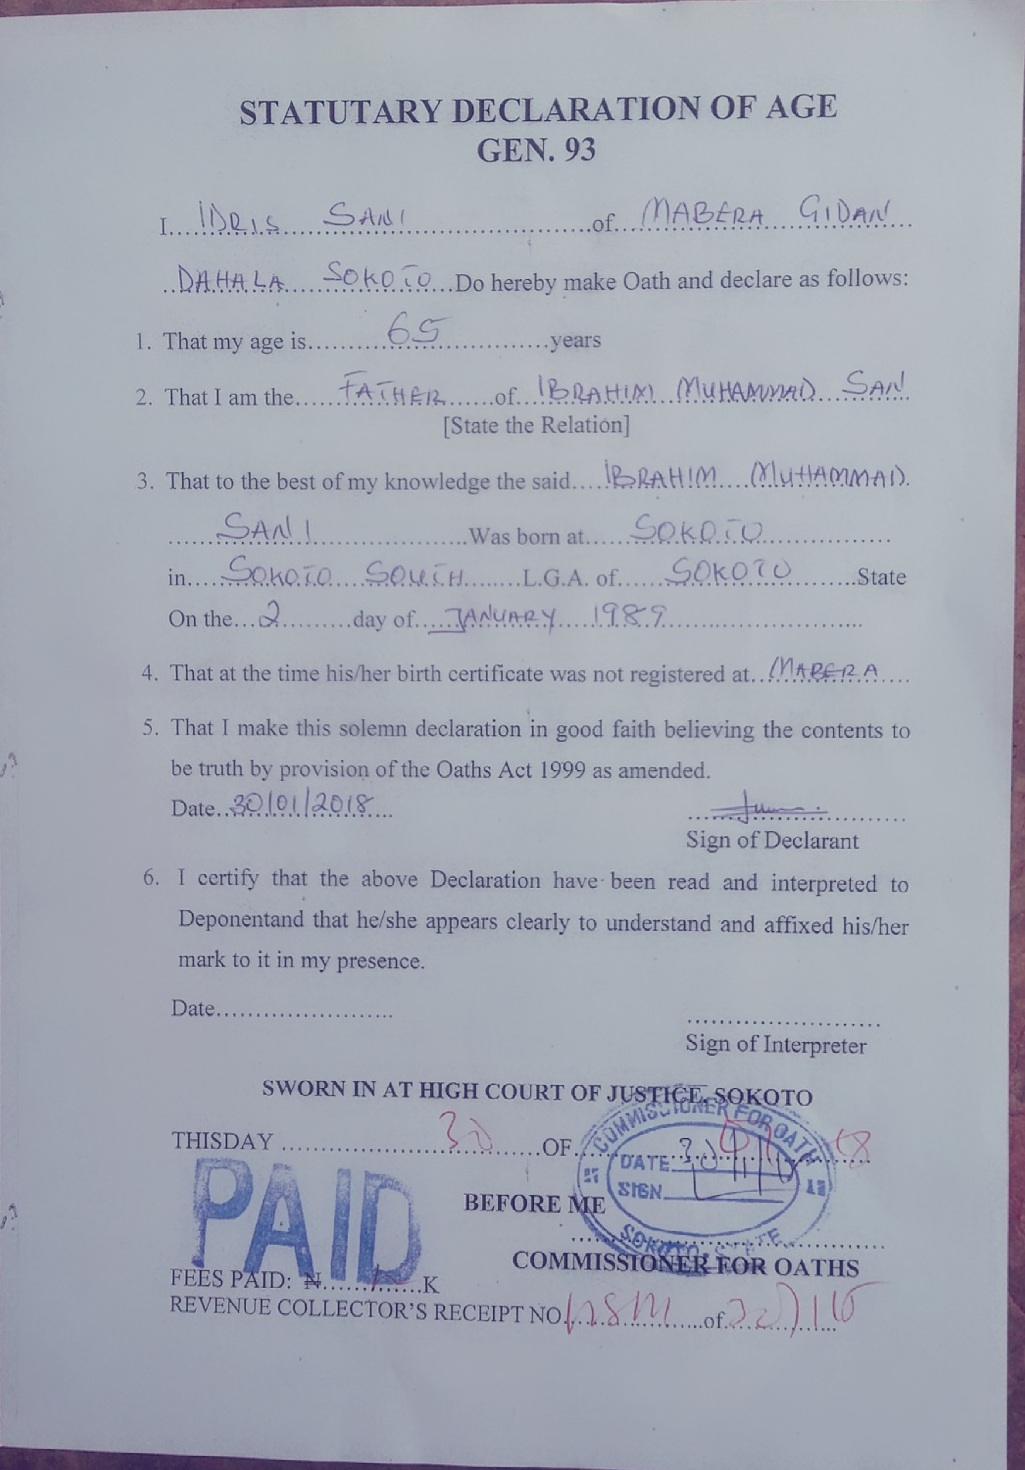 STATUTARY DECLARATION OF AGE
GEN. 93
I....IDRIS SANI....of....MABERA GIDAN....
..DAHALA SOKOTO...Do hereby make Oath and declare as follows:
1. That my age is....65....years
2. That I am the....FATHER....of..IBRAHIM MUHAMMAD SANI
[State the Relation]
3. That to the best of my knowledge the said....IBRAHIM....MUHAMMAD.
....SANI....Was born at....SOKOTO....
in....SOKOTO SOUTH....L.G.A. of....SOKOTO....State
On the...2....day of....JANUARY 1989....
4. That at the time his/her birth certificate was not registered at..MABERA....
5. That I make this solemn declaration in good faith believing the contents to
be truth by provision of the Oaths Act 1999 as amended.
Date..30/01/2018....
Sign of Declarant
6. I certify that the above Declaration have been read and interpreted to
Deponentand that he/she appears clearly to understand and affixed his/her
mark to it in my presence.
Date....
Sign of Interpreter
SWORN IN AT HIGH COURT OF JUSTICE, SOKOTO
THISDAY ....30....OF....18
COMMISSIONER FOR OATH
DATE 30
SIGN
SOKOTO STATE
PAID
BEFORE ME
COMMISSIONER FOR OATHS
FEES PAID: ₦........K
REVENUE COLLECTOR'S RECEIPT NO........of........